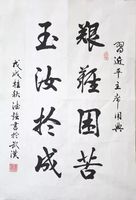 艱難困苦
玉汝於成
習近平主席用典
戊戌桂秋洪鐘書於武漢